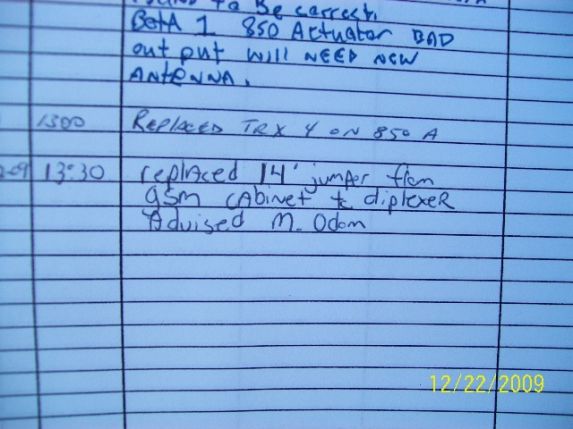 to be correct.
BetA 1 850 Actuator BAD
out put will NEED NEW
ANTENNA.
1300 REPLACED TRX 4 ON 850 A
-09 13:30 replaced 14' jumper from
gsm cabinet to diplexer
Advised M. Odom
12/22/2009